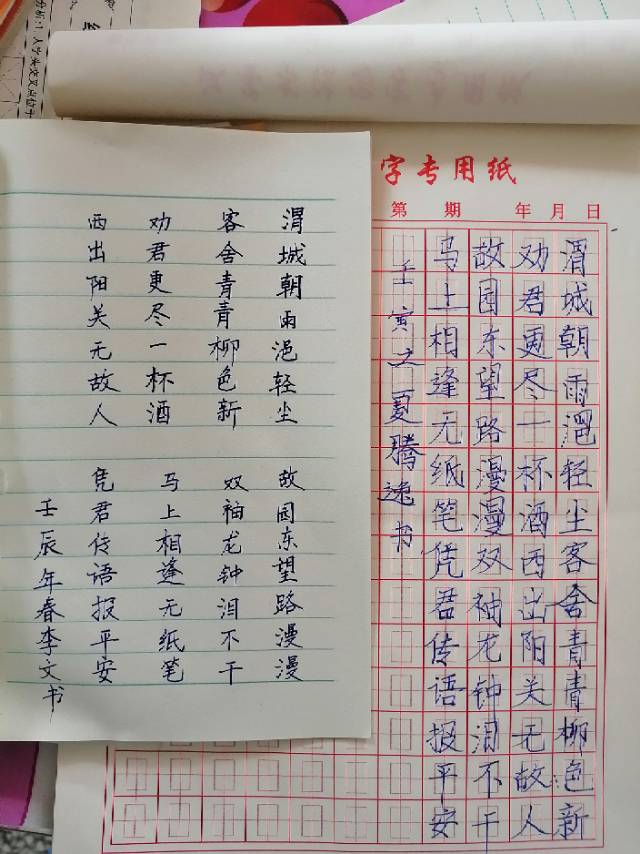 渭城朝雨浥轻尘
客舍青青柳色新
劝君更尽一杯酒
西出阳关无故人
故园东望路漫漫
双袖龙钟泪不干
马上相逢无纸笔
凭君传语报平安
壬辰年春李文书
字专用纸
第 期 年 月 日
渭城朝雨浥轻尘客舍青青柳色新
劝君更尽一杯酒西出阳关无故人
故园东望路漫漫双袖龙钟泪不干
马上相逢无纸笔凭君传语报平安
壬寅之夏腾逸书